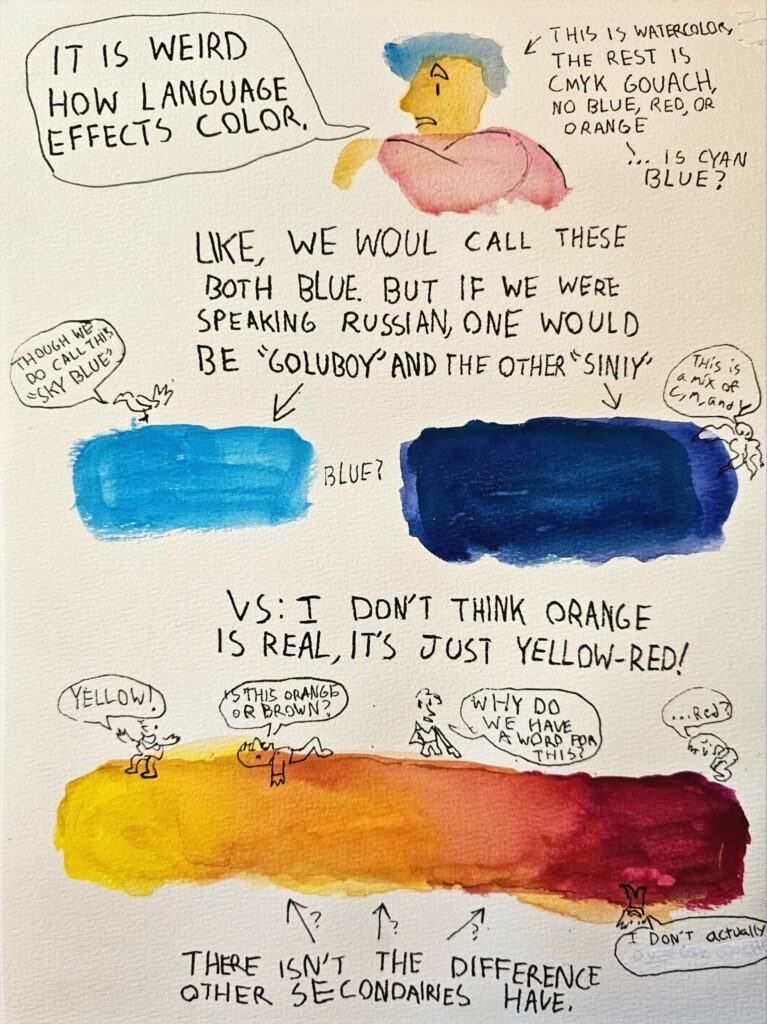 IT IS WEIRD
HOW LANGUAGE
EFFECTS COLOR.
THIS IS WATERCOLOR,
THE REST IS
CMYK GOUACH,
NO BLUE, RED, OR
ORANGE
... IS CYAN
BLUE?
LIKE, WE WOUL CALL THESE
BOTH BLUE. BUT IF WE WERE
SPEAKING RUSSIAN, ONE WOULD
BE "GOLUBOY" AND THE OTHER "SINIY"
THOUGH WE
DO CALL THIS
"SKY BLUE"
This is
a mix of
C, M, and Y
BLUE?
VS: I DON'T THINK ORANGE
IS REAL, IT'S JUST YELLOW-RED!
YELLOW!
IS THIS ORANGE
OR BROWN?
WHY DO
WE HAVE
A WORD FOR
THIS?
...Red?
? ? ?
I DON'T actually
THERE ISN'T THE DIFFERENCE
OTHER SECONDAIRIES HAVE.